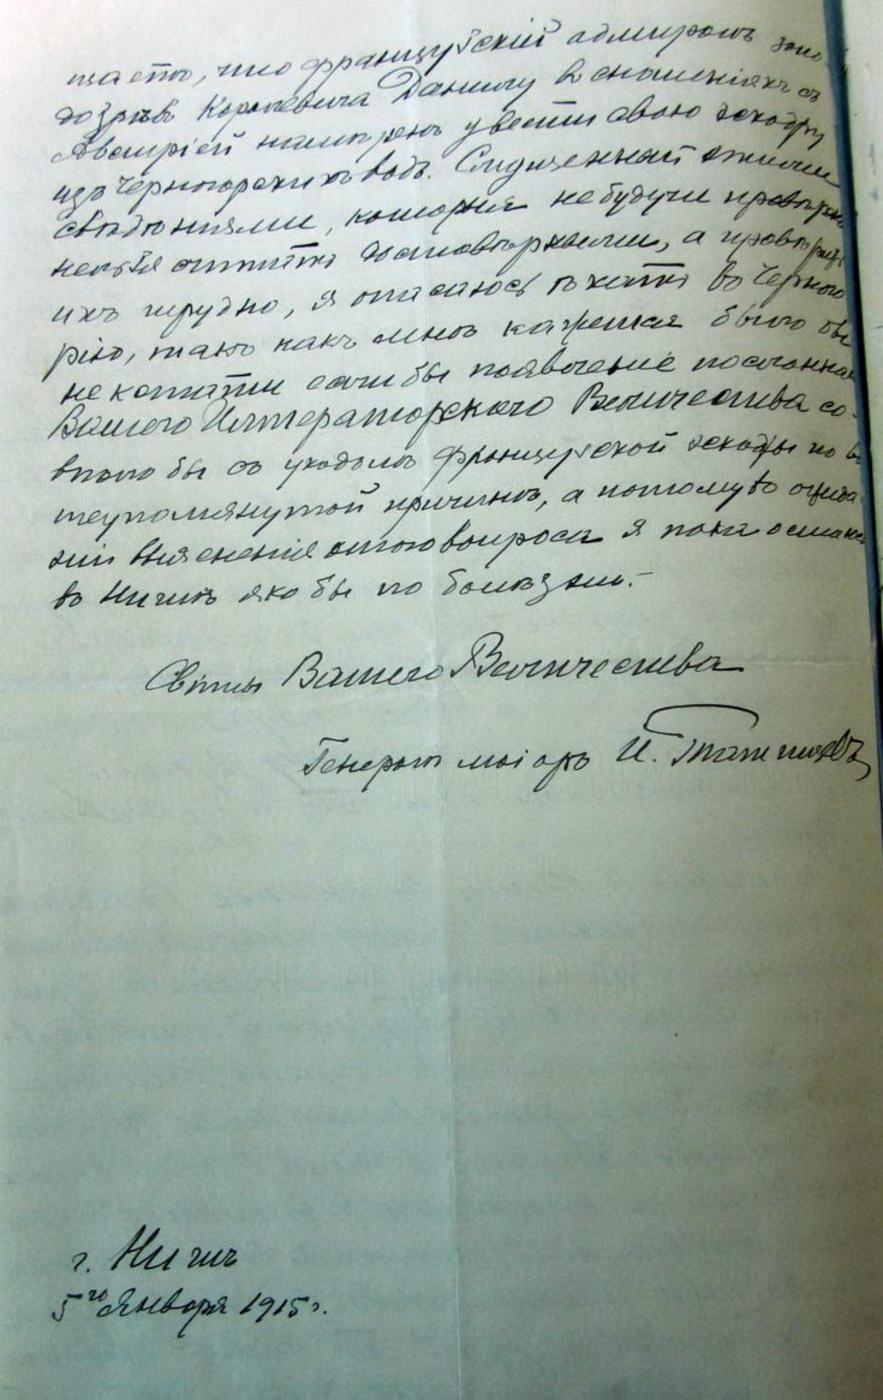 щаетъ, что французскій адмиралъ запо-
дозрѣвъ Королевича Данилу въ сношеніяхъ съ
Австріей намѣренъ увести свою эскадру
изъ Черногорскихъ водъ. Смущенный этими
свѣдѣніями, которыя не будучи провѣрены
нельзя считать достовѣрными, а провѣрить
ихъ трудно, я опасаюсь ѣхать въ Черного
рію, такъ какъ мнѣ кажется было бы
не кстати если бы появленіе посланнаго
Вашего Императорскаго Величества со-
впало бы съ уходомъ французской эскадры по вы
шеупомянутой причинѣ, а потому въ ожида
ніи выясненія этого вопроса я пока останусь
въ Нишѣ яко бы по болѣзни.-
Свиты Вашего Величества
Генералъ маіоръ И. Татищевъ
г. Нишъ
5го Января 1915 г.